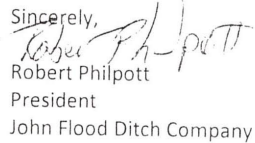 Sincerely,
Robert Philpott
Robert Philpott
President
John Flood Ditch Company